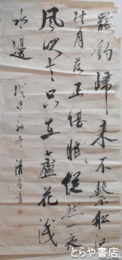 罷釣歸來不繫船江
村月落正堪眠縱然一夜
風吹去只在蘆花淺
水邊
とらや書房